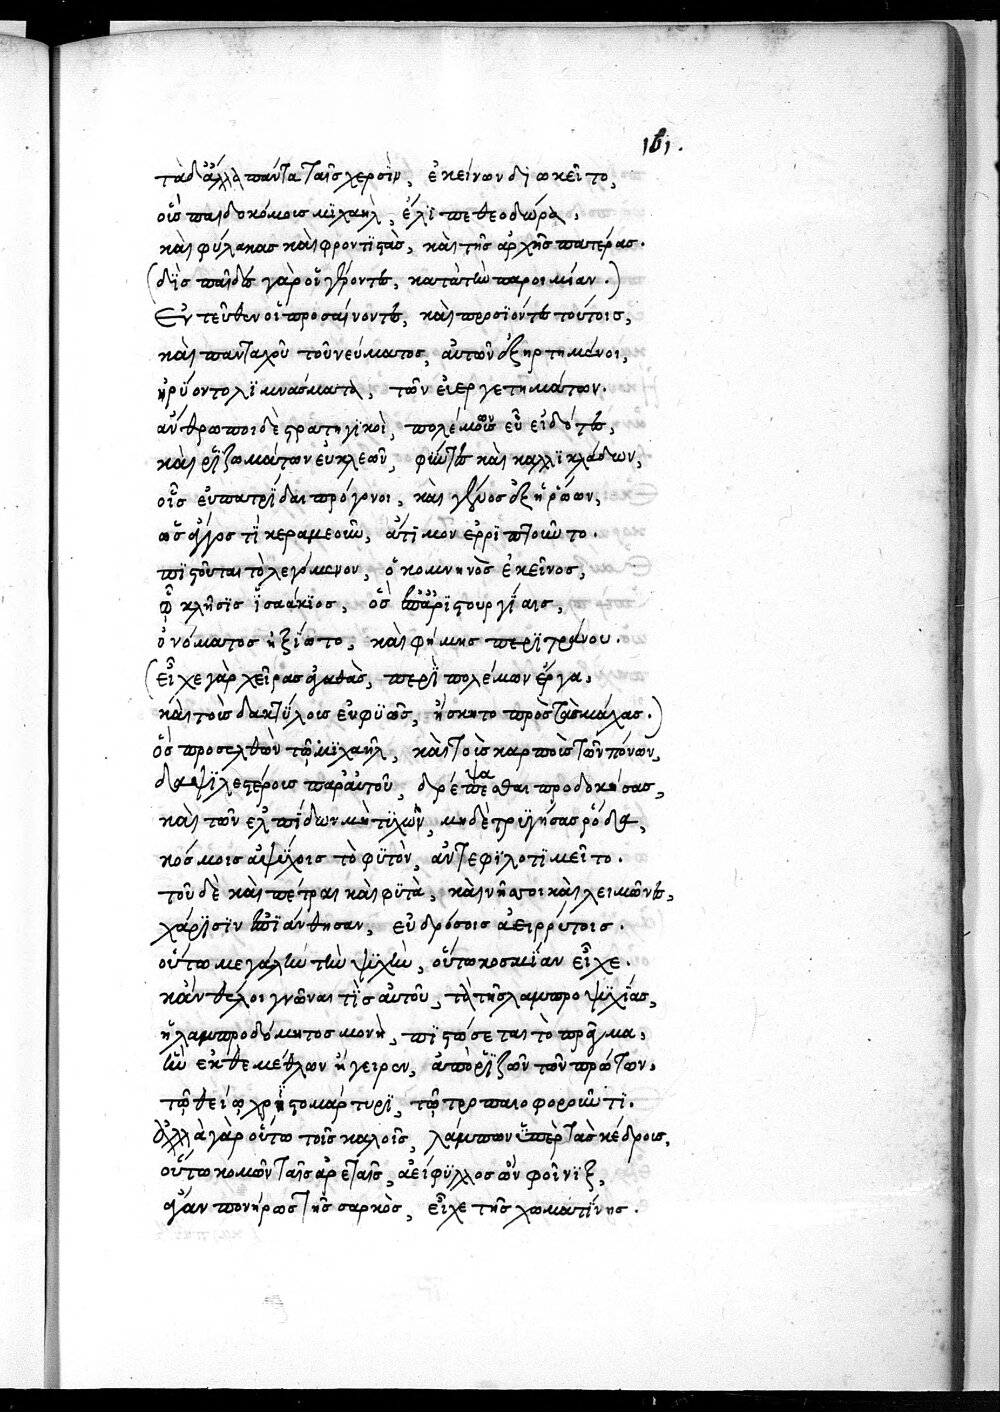 161.
τὰ δ' ἄλλα πάντα ταῖς χερσὶν, ἐκείνων διῳκεῖτο,
οἷς παιδοκόμοις μϊχαὴλ, ἐλίπετο θεοδώρα,
καὶ φύλακας καὶ φροντιστὰς, καὶ τῆς ἀρχῆς πατέρας.
(δὶς παῖδες γὰρ οἱ γέροντες, κατὰ τὴν παροιμίαν.)
Ἐντεῦθεν οἱ προσαίνοντες, καὶ προσϊόντες τούτοις,
καὶ πανταχοῦ τοῦ νεύματος, αὐτῶν ἐξηρτημένοι,
ἠρύοντο λϊμνάσματα, τῶν εὐεργετημάτων.
ἄνθρωποι δὲ στρατηγικοὶ, πολέμους εὖ εἰδότες,
καὶ ῥϊζωμάτων εὐκλεῶν, φύντες καὶ καλλϊκλάδων,
οἷς εὐπατρίδαι πρόγονοι, καὶ γένος ἐξ ἡρώων,
ὡς ἄγος τϊ κεραμεοῦν, ἄτιμον ἐρρϊπτοῦντο.
πϊστοῦται τὸ λεγόμενον, ὁ κομνηνὸς ἐκεῖνος,
ᾧ κλῆσϊς ἰσαάκϊος, ὃς ἐπ' ἀρϊστουργίαις,
ὀνόματος ἠξίωτο, καὶ φήμης περϊτράνου.
(εἶχε γὰρ χεῖρας ἀγαθὰς, περὶ πολέμων ἔργα,
καὶ τοῖς δακτύλοις εὐφυῶς, ἤσκητο πρὸς τὰς μάχας.)
ὃς προσελθὼν τῷ μϊχαὴλ, καὶ τοῖς καρποῖς τῶν πόνων,
δαψϊλεστέροις παρ' αὐτοῦ, δρέψασθαι προσδοκήσας,
καὶ τῶν ἐλπίδων μὴ τυχὼν, μηδὲ τρυγήσας ῥόδα,
κόσμοις ἀψύχοις τὸ φυτὸν, ἀντεφϊλοτϊμεῖτο.
τοῦ δὲ καὶ πέτραι καὶ φυτὰ, καὶ νῆσοι καὶ λειμῶνες,
χάρϊσϊν ἐπϊάνθησαν, εὐδρόσοις ἀειρρύτοις.
οὕτω μεγάλην τὴν ψυχὴν, οὕτω κοσμίαν εἶχε.
κἂν θέλοι γνῶναι τὶς αὐτοῦ, τὸ τῆς λαμπροψυχίας,
ἡ λαμπροδόμητος μονὴ, πϊστώσεται τὸ πρᾶγμα,
ἣν ἐκ θεμέθλων ἤγειρεν, ἀπὸ ῥϊζῶν τῶν πρώτων,
τῷ θείῳ χρηστομάρτυρϊ, τῷ τροπαιοφοροῦντϊ.
ἀλλὰ γὰρ οὕτω τοῖς καλοῖς, λάμπων ὑπὲρ τὰς κέδρους,
οὕτω κομῶν ταῖς ἀρεταῖς, ἀείφυλλος ὢν φοῖνϊξ,
ἄγαν πονήρως τῆς σαρκὸς, εἶχε τῆς χωματίνης.